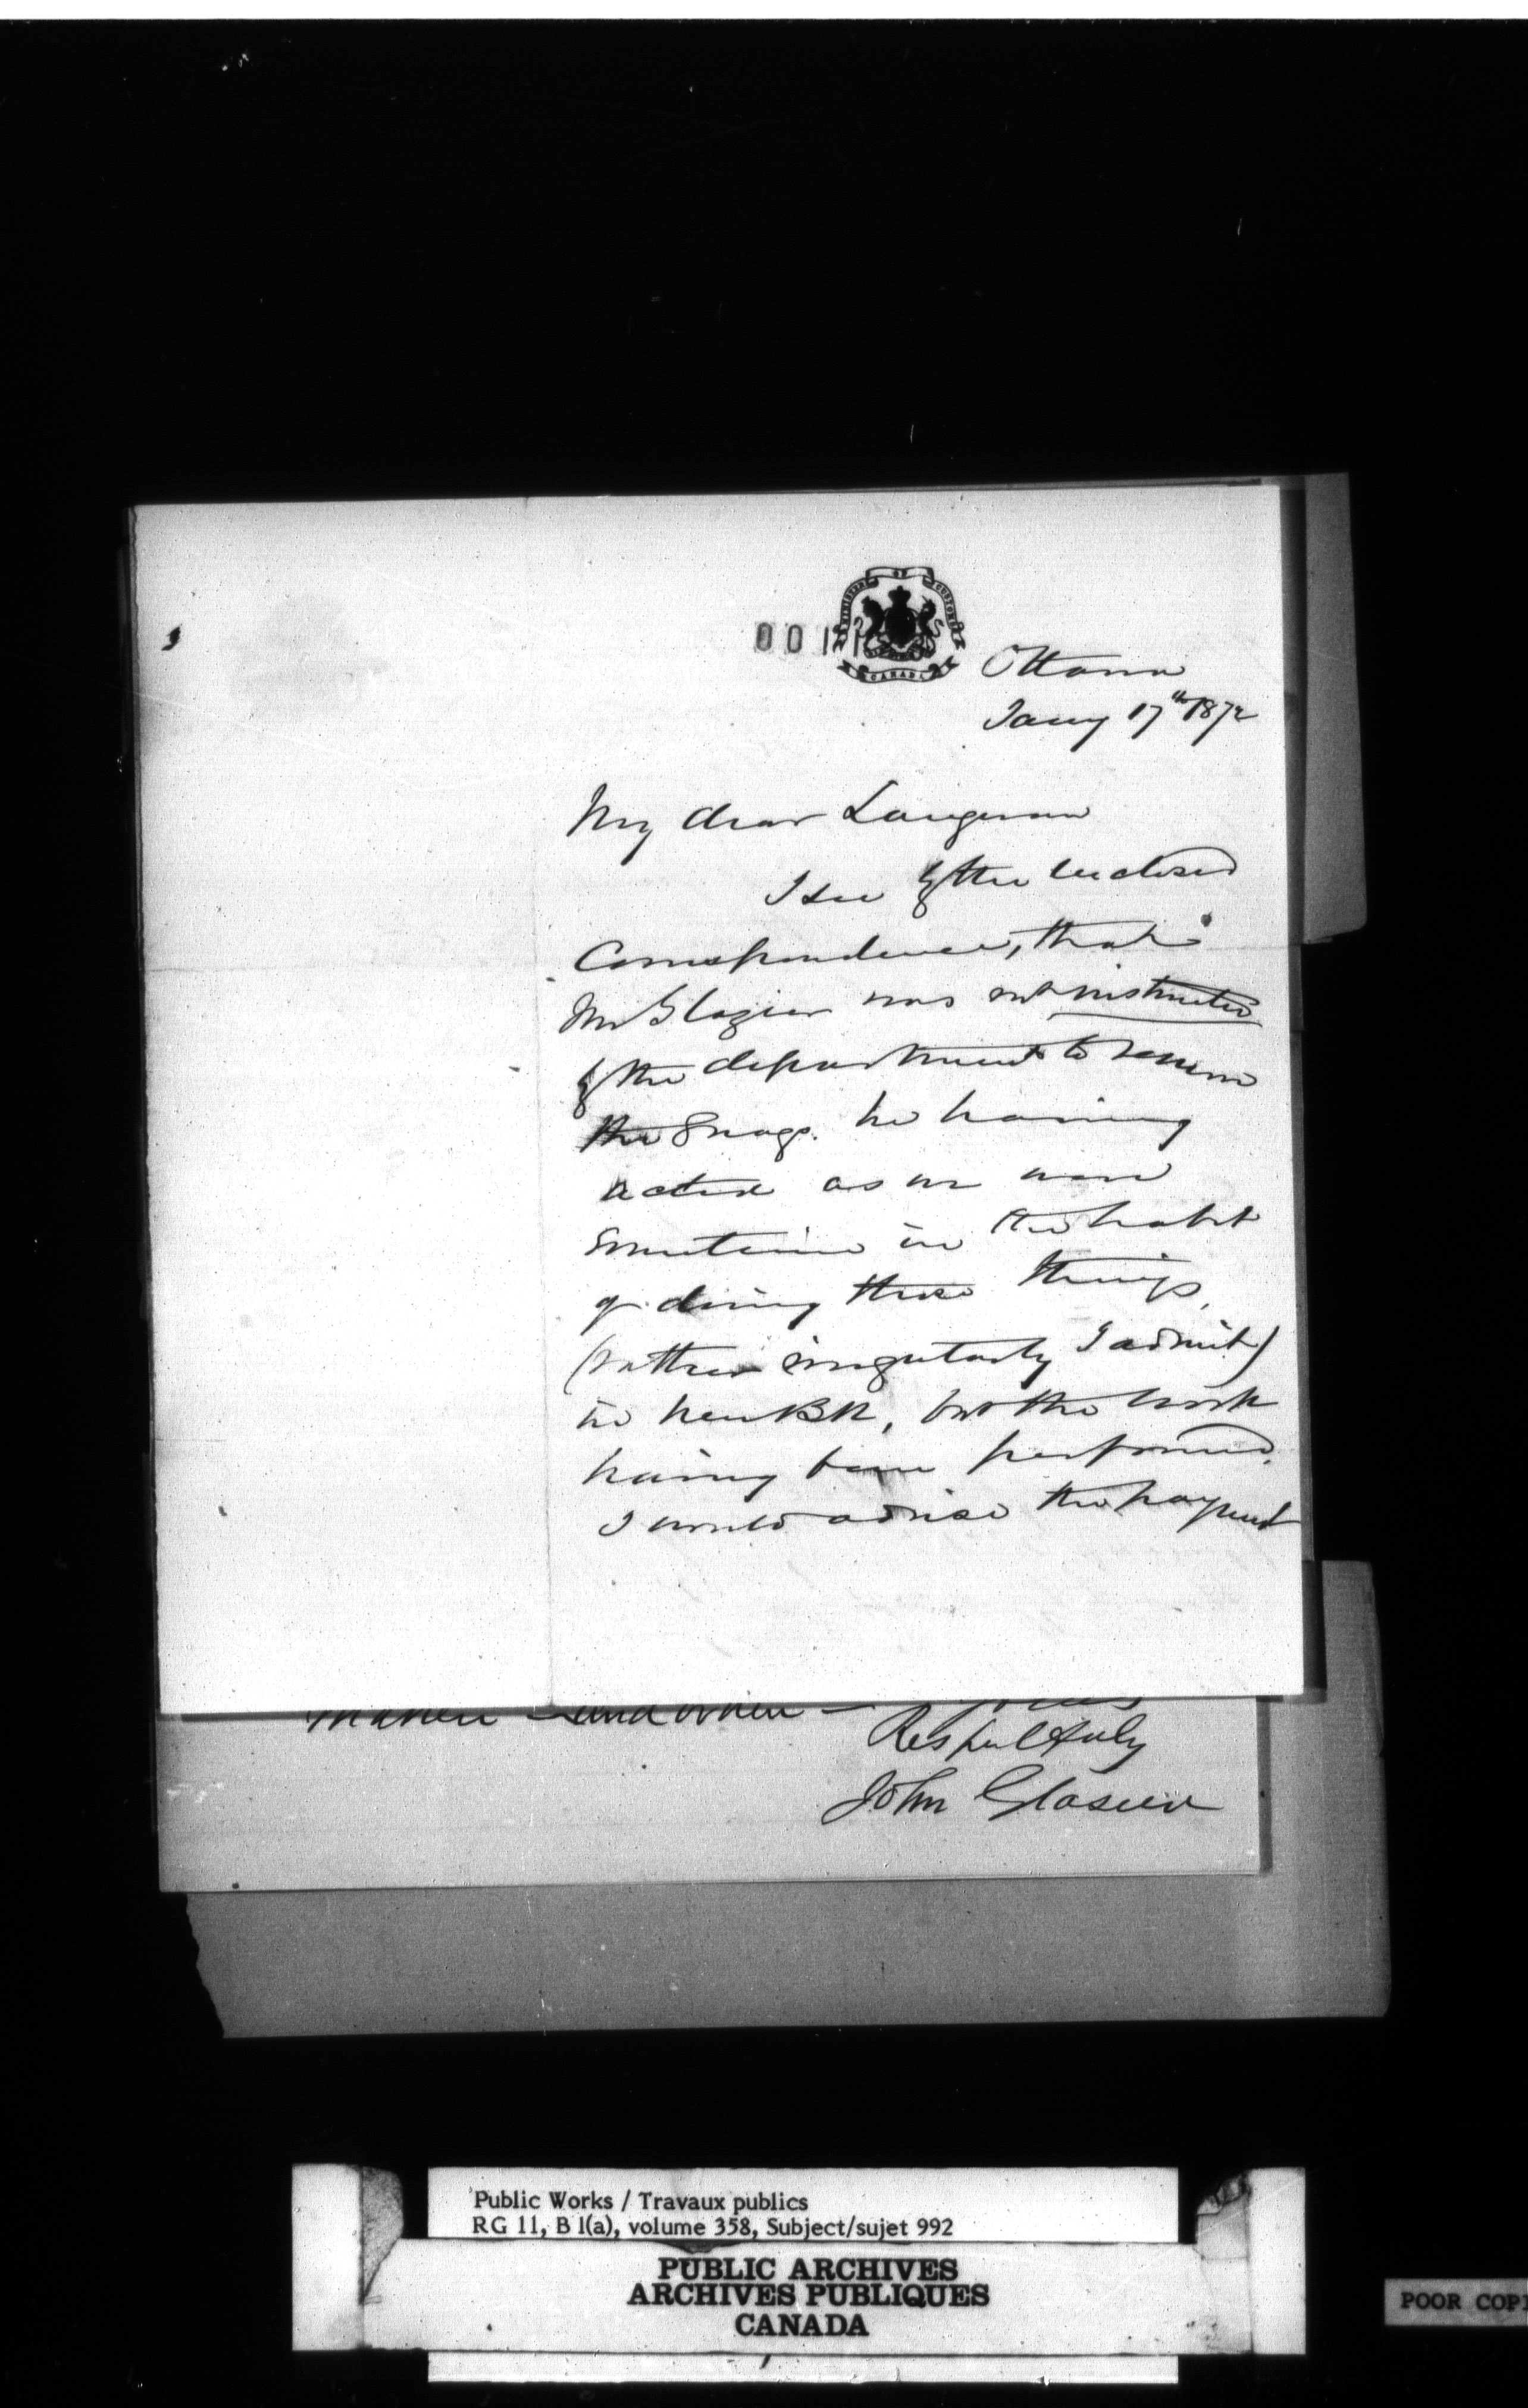 MINISTER OF CUSTOMS
CANADA
001
Ottawa
Jany 17th 1872
My dear Langevin
I see by the enclosed
Correspondence, that
Mr Glazier was not instructed
by the department to remove
the Snags. he having
acted as we were
sometime in the habit
of doing these things,
(rather irregularly I admit)
in New BK, but the work
having been performed,
I would advise the payment
Respectfuly
John Glasier
Public Works / Travaux publics
RG 11, B 1(a), volume 358, Subject/sujet 992
PUBLIC ARCHIVES
ARCHIVES PUBLIQUES
CANADA
POOR COPI